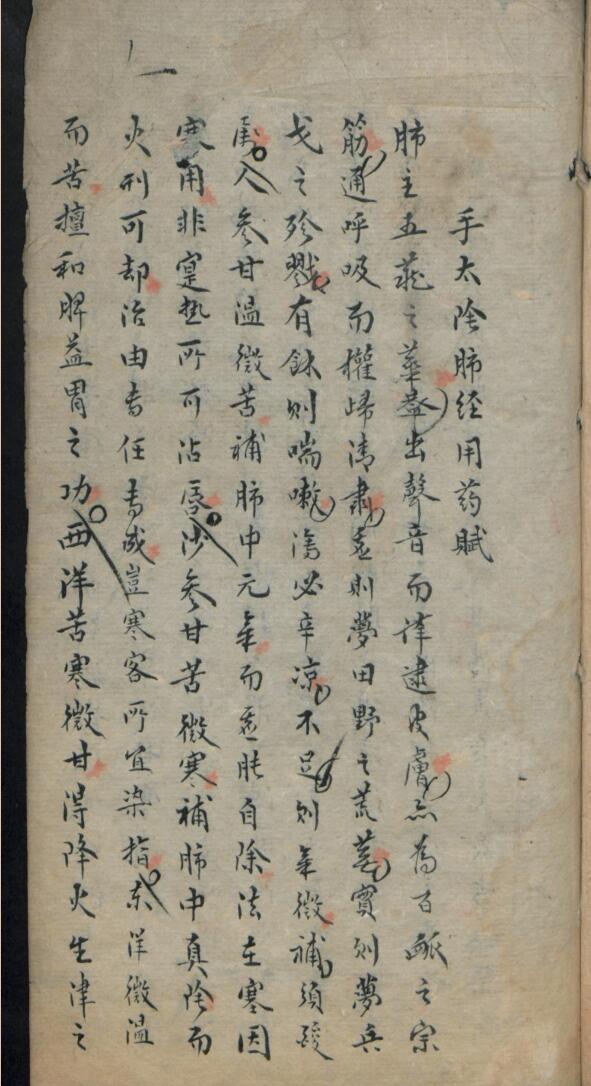 手太陰肺經用药賦
肺主五藏之華蓋出聲音而津逮皮膚亦為百脈之宗
筋通呼吸而權歸清肅虛則夢田野之荒蕪實則夢兵
戈之殄戮有餘則喘嗽瀉必辛凉不足則氣微補須緩
圖人參甘溫微苦補肺中元氣而虛眊自除法在寒因
寒用非寔熱所可沾唇沙參甘苦微寒補肺中真陰而
火刑可却治由專任專成豈寒客所宜染指東洋微溫
而苦擅和脾益胃之功西洋苦寒微甘得降火生津之